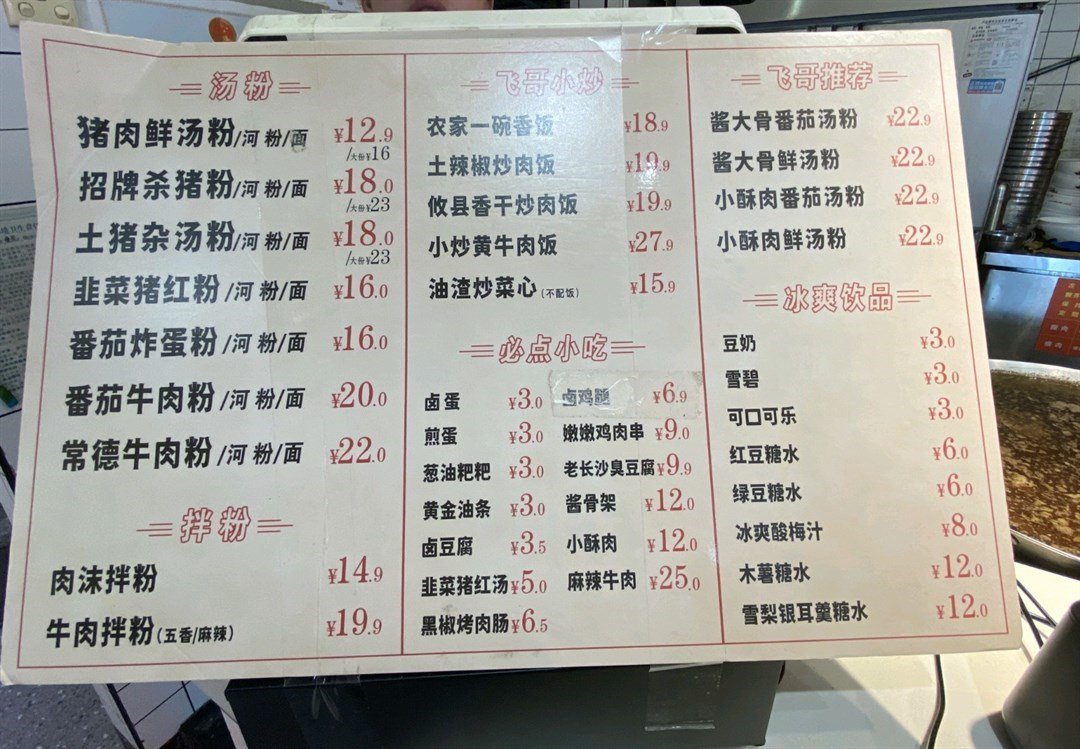 汤粉
猪肉鲜汤粉/河粉/面 ¥12.9
/大份¥16
招牌杀猪粉/河粉/面 ¥18.0
/大份¥23
土猪杂汤粉/河粉/面 ¥18.0
/大份¥23
韭菜猪红粉/河粉/面 ¥16.0
番茄炸蛋粉/河粉/面 ¥16.0
番茄牛肉粉/河粉/面 ¥20.0
常德牛肉粉/河粉/面 ¥22.0
拌粉
肉沫拌粉 ¥14.9
牛肉拌粉(五香/麻辣) ¥19.9
飞哥小炒
农家一碗香饭 ¥18.9
土辣椒炒肉饭 ¥19.9
攸县香干炒肉饭 ¥19.9
小炒黄牛肉饭 ¥27.9
油渣炒菜心(不配饭) ¥15.9
必点小吃
卤蛋 ¥3.0
煎蛋 ¥3.0
葱油粑粑 ¥3.0
黄金油条 ¥3.0
卤豆腐 ¥3.5
韭菜猪红汤 ¥5.0
黑椒烤肉肠 ¥6.5
卤鸡腿 ¥6.9
嫩嫩鸡肉串 ¥9.0
老长沙臭豆腐 ¥9.9
酱骨架 ¥12.0
小酥肉 ¥12.0
麻辣牛肉 ¥25.0
飞哥推荐
酱大骨番茄汤粉 ¥22.9
酱大骨鲜汤粉 ¥22.9
小酥肉番茄汤粉 ¥22.9
小酥肉鲜汤粉 ¥22.9
冰爽饮品
豆奶 ¥3.0
雪碧 ¥3.0
可口可乐 ¥3.0
红豆糖水 ¥6.0
绿豆糖水 ¥6.0
冰爽酸梅汁 ¥8.0
木薯糖水 ¥12.0
雪梨银耳羹糖水 ¥12.0